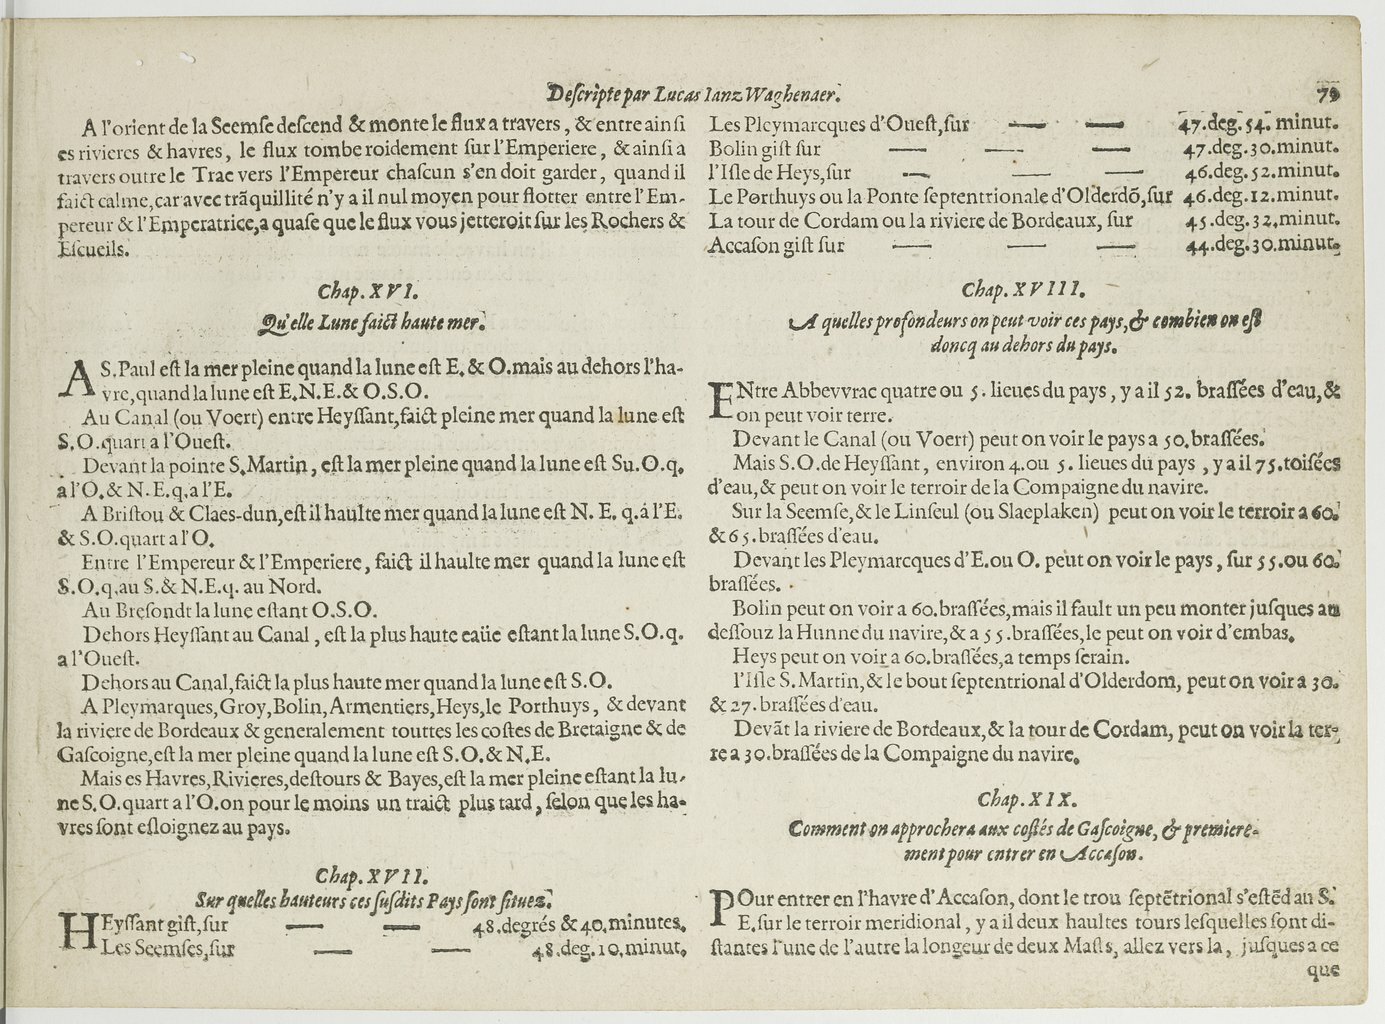 Descripte par Lucas Ianz Waghenaer.
79
A l'orient de la Seemse descend & monte le flux a travers, & entre ainsi
es rivieres & havres, le flux tombe roidement sur l'Emperiere, & ainsi a
travers outre le Trac vers l'Empereur chascun s'en doit garder, quand il
faict calme, car avec trãquillité n'y a il nul moyen pour flotter entre l'Em-
pereur & l'Emperatrice, a quase que le flux vous jetteroit sur les Rochers &
Escueils.
Chap. XVI.
Qu'elle Lune faict haute mer.
A S. Paul est la mer pleine quand la lune est E. & O. mais au dehors l'ha-
vre, quand la lune est E.N.E. & O.S.O.
Au Canal (ou Voert) entre Heyssant, faict pleine mer quand la lune est
S.O. quart a l'Ouest.
Devant la pointe S. Martin, est la mer pleine quand la lune est Su.O.q.
a l'O. & N.E.q. a l'E.
A Bristou & Claes-dun, est il haulte mer quand la lune est N.E.q. á l'E.
& S.O. quart a l'O.
Entre l'Empereur & l'Emperiere, faict il haulte mer quand la lune est
S.O.q. au S. & N.E.q. au Nord.
Au Bresondt la lune estant O.S.O.
Dehors Heyssant au Canal, est la plus haute eaüe estant la lune S.O.q.
a l'Ouest.
Dehors au Canal, faict la plus haute mer quand la lune est S.O.
A Pleymarques, Groy, Bolin, Armentiers, Heys, le Porthuys, & devant
la riviere de Bordeaux & generalement touttes les costes de Bretaigne & de
Gascoigne, est la mer pleine quand la lune est S.O. & N.E.
Mais es Havres, Rivieres, destours & Bayes, est la mer pleine estant la lu-
ne S.O. quart a l'O. on pour le moins un traict plus tard, selon que les ha-
vres sont esloignez au pays.
Chap. XVII.
Sur quelles hauteurs ces susdits Pays sont situez.
HEyssant gist, sur — — 48. degrés & 40. minutes.
Les Seemses, sur — — 48. deg. 10. minut.
Les Pleymarcques d'Ouest, sur — — 47. deg. 54. minut.
Bolin gist sur — — — 47. deg. 30. minut.
l'Isle de Heys, sur — — — 46. deg. 52. minut.
Le Porthuys ou la Ponte septentrionale d'Olderdõ, sur 46. deg. 12. minut.
La tour de Cordam ou la riviere de Bordeaux, sur 45. deg. 32. minut.
Accason gist sur — — — 44. deg. 30. minut.
Chap. XVIII.
A quelles profondeurs on peut voir ces pays, & combien on est
doncq au dehors du pays.
ENtre Abbevvrac quatre ou 5. lieues du pays, y a il 52. brassées d'eau, &
on peut voir terre.
Devant le Canal (ou Voert) peut on voir le pays a 50. brassées.
Mais S.O. de Heyssant, environ 4. ou 5. lieues du pays, y a il 75. toisées
d'eau, & peut on voir le terroir de la Compaigne du navire.
Sur la Seemse, & le Linseul (ou Slaeplaken) peut on voir le terroir a 60.
& 65. brassées d'eau.
Devant les Pleymarcques d'E. ou O. peut on voir le pays, sur 55. ou 60.
brassées.
Bolin peut on voir a 60. brassées, mais il fault un peu monter jusques au
dessouz la Hunne du navire, & a 55. brassées, le peut on voir d'embas.
Heys peut on voir a 60. brassées, a temps serain.
l'Isle S. Martin, & le bout septentrional d'Olderdom, peut on voir a 30.
& 27. brassées d'eau.
Devãt la riviere de Bordeaux, & la tour de Cordam, peut on voir la ter-
re a 30. brassées de la Compaigne du navire.
Chap. XIX.
Comment on approchera aux costés de Gascoigne, & premiere-
ment pour entrer en Accason.
POur entrer en l'havre d'Accason, dont le trou septẽtrional s'estẽd au S.
E. sur le terroir meridional, y a il deux haultes tours lesquelles sont di-
stantes l'une de l'autre la longeur de deux Masts, allez vers la, jusques a ce
que